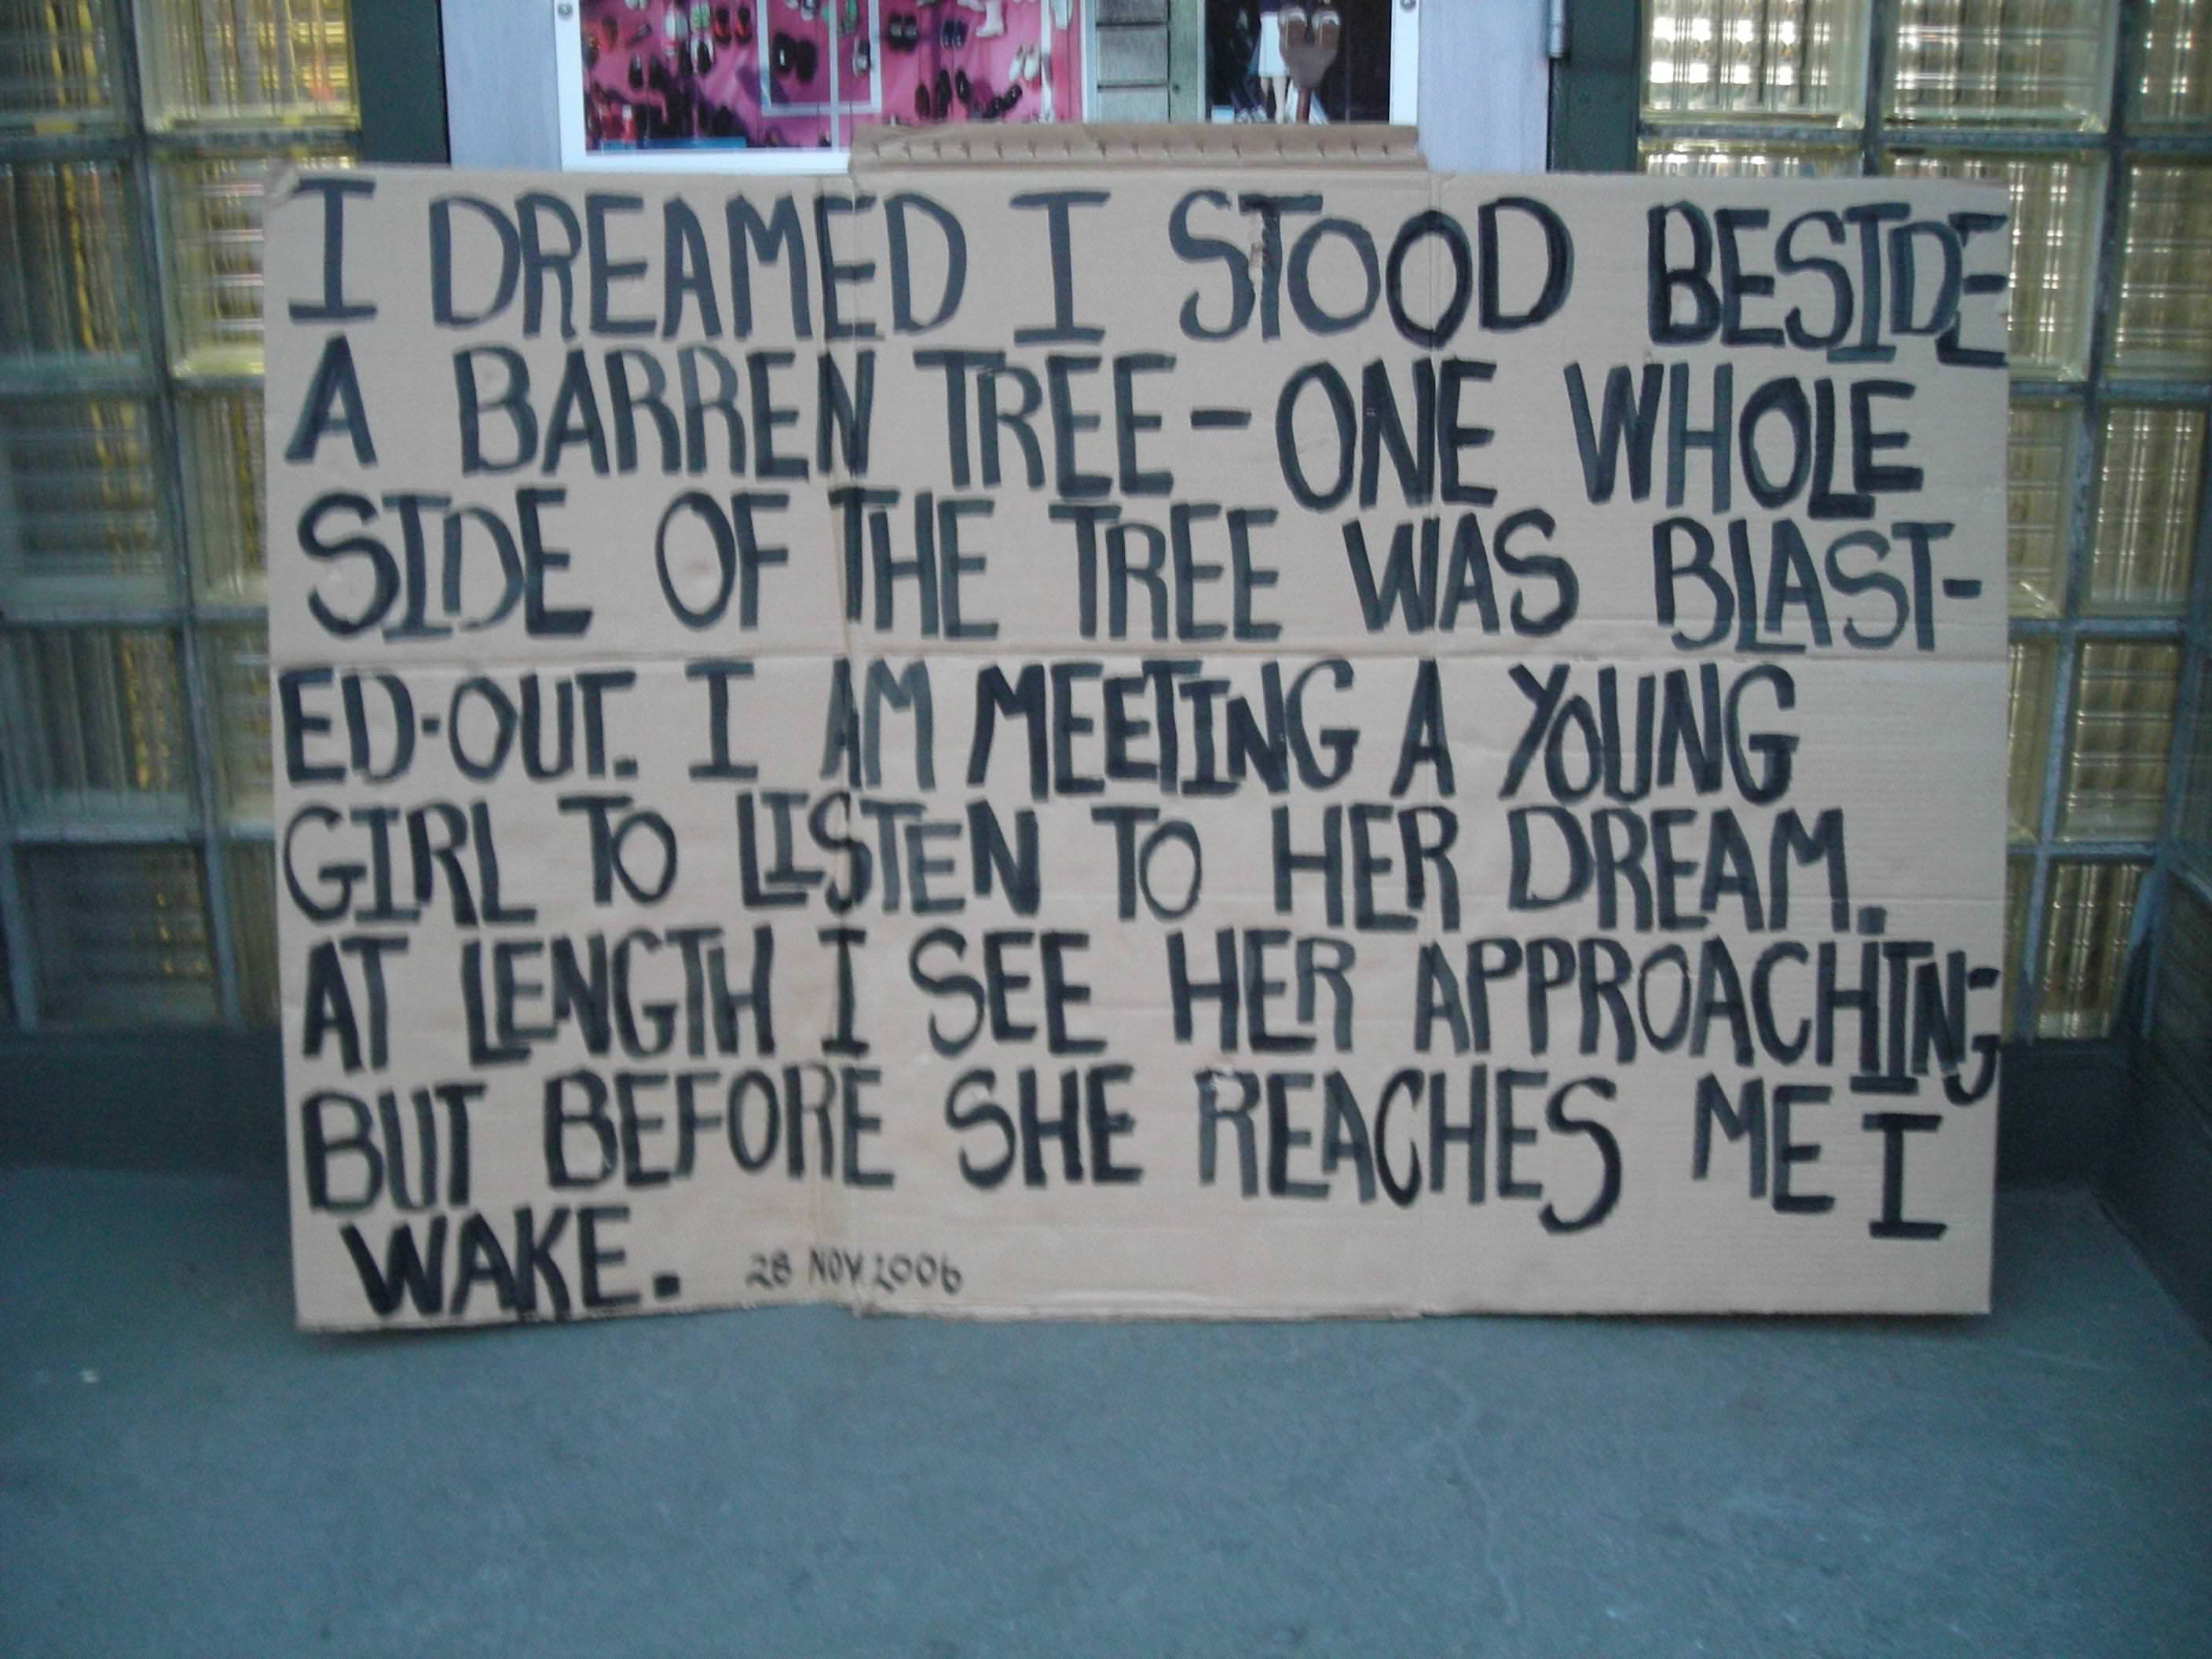 I DREAMED I STOOD BESIDE
A BARREN TREE-ONE WHOLE
SIDE OF THE TREE WAS BLAST-
ED-OUT. I AM MEETING A YOUNG
GIRL TO LISTEN TO HER DREAM.
AT LENGTH I SEE HER APPROACHING
BUT BEFORE SHE REACHES ME I
WAKE. 28 NOV 2006